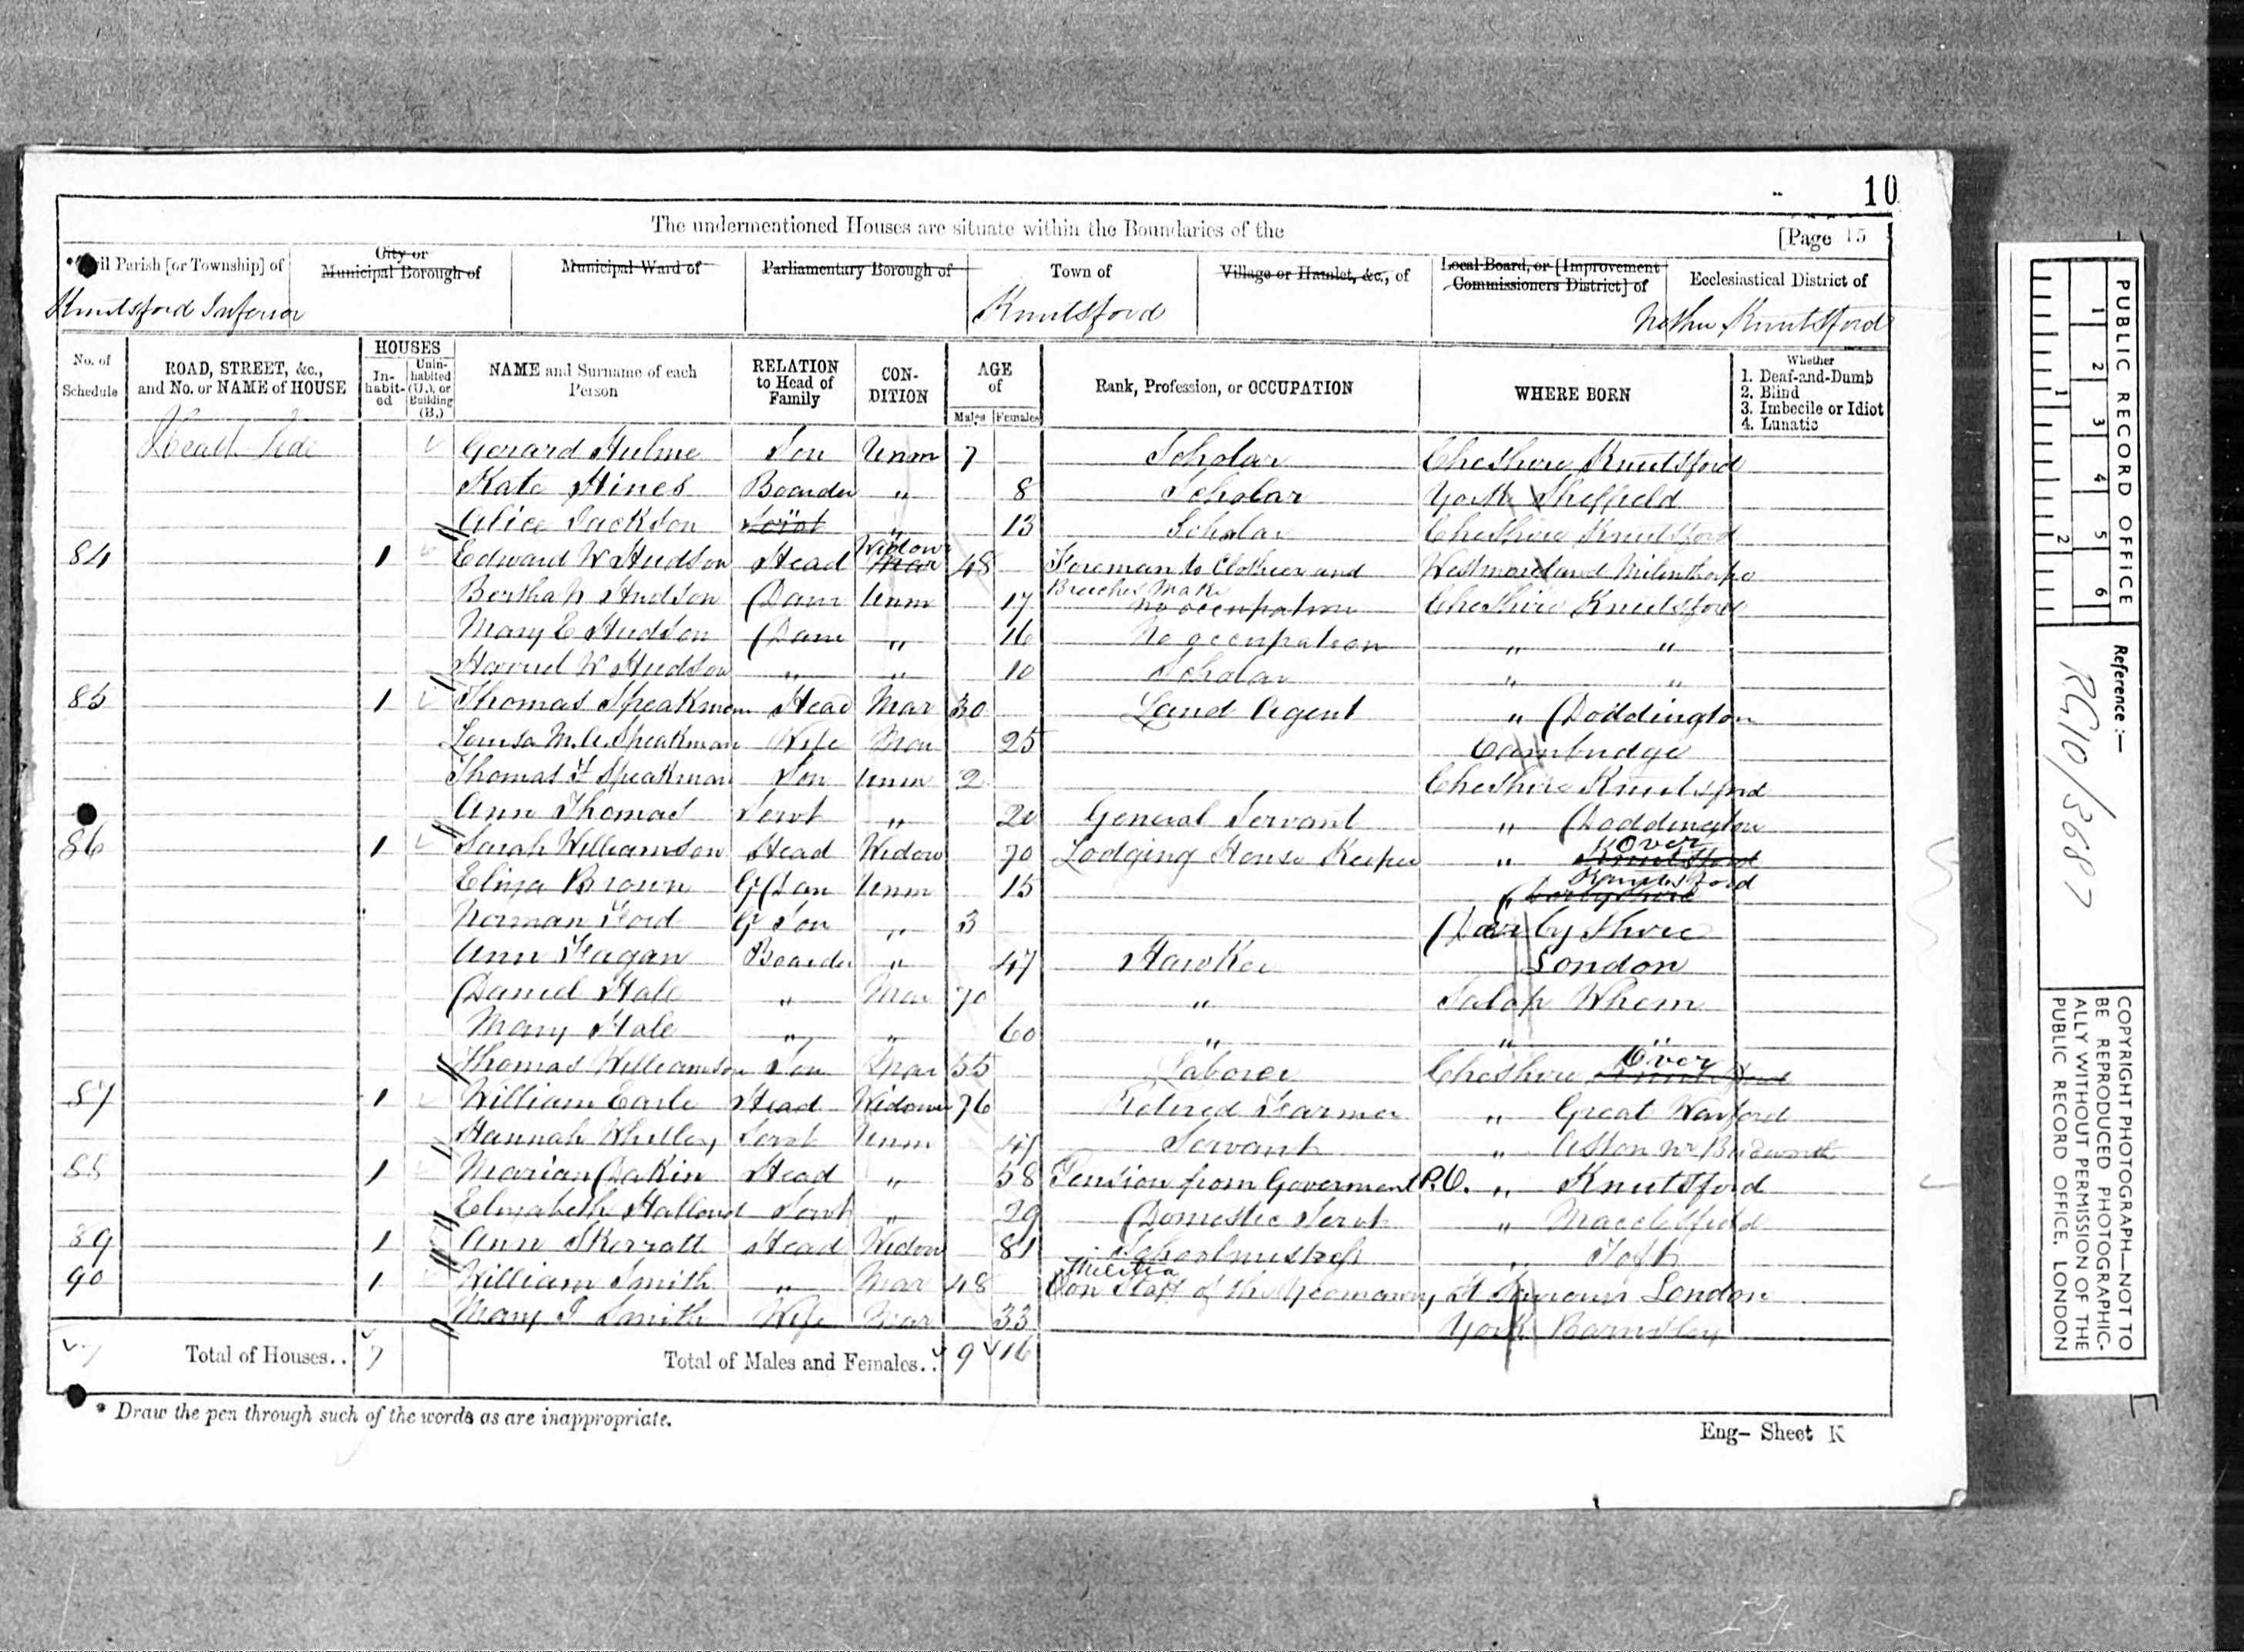 10
The undermentioned Houses are situate within the Boundaries of the
[Page 15
Civil Parish [or Township] of
City or Municipal Borough of
Municipal Ward of
Parliamentary Borough of
Town of
Village or Hamlet, &c., of
Local Board, or [Improvement Commissioners District] of
Ecclesiastical District of
Knutsford Inferior
Knutsford
Nether Knutsford
No. of Schedule
ROAD, STREET, &c., and No. or NAME of HOUSE
HOUSES
In-habit-ed
Unin-habited (U.), or Building (B.)
NAME and Surname of each Person
RELATION to Head of Family
CON-DITION
AGE of
Males
Females
Rank, Profession, or OCCUPATION
WHERE BORN
Whether
1. Deaf-and-Dumb
2. Blind
3. Imbecile or Idiot
4. Lunatic
Heath Side Gerard Hulme Son Unm 7 Scholar Cheshire Knutsford
Kate Hines Boarder " 8 Scholar York Sheffield
Alice Jackson Servt " 13 Scholar Cheshire Knutsford
84 1 Edward W Hudson Head Widowr Mar 48 Foreman to Clothier and Westmoreland Milnthorpe
Breeches Maker
Bertha Hudson Daur Unm 17 No occupation Cheshire Knutsford
Mary E Hudson Daur " 16 No occupation " "
Harriet W Hudson " " 10 Scholar " "
85 1 Thomas Speakman Head Mar 30 Land Agent " Doddington
Louisa M.A. Speakman Wife Mar 25 Cambridge
Thomas F Speakman Son Unm 2 Cheshire Knutsford
Ann Thomas Servt " 20 General Servant " Doddington
86 1 Sarah Williamson Head Widow 70 Lodging House Keeper " Over Knutsford
Eliza Brown G Daur Unm 15 " Knutsford Derbyshire
Norman Ford G Son " 3 Darbyshire
Ann Fagan Boarder " 47 Hawker London
Daniel Hale " Mar 70 " Salop Whem
Mary Hale " " 60 " " "
Thomas Williamson Son Mar 35 Laborer Cheshire Over Knutsford
87 1 William Earle Head Widower 76 Retired Farmer " Great Warford
Hannah Unm Servant " Aston nr Budworth
88 1 Marian Dakin Head " 58 Pension from Goverment P.O. " Knutsford
Elizabeth Holland Servt " 29 Domestic Servt " Macclesfield
89 1 Ann Skerratt Head Widow 81 Schoolmistress " Toft
90 1 William Smith " Mar 48 Militia
On Staff of the Yeomanry St London
Mary J Smith Wife Mar 33 York Barnsley
Total of Houses.. 7
Total of Males and Females.. 9 16
* Draw the pen through such of the words as are inappropriate.
Eng– Sheet K
1 2 3 4 5 6
1 2
PUBLIC RECORD OFFICE
Reference :—
RG10/3687
COPYRIGHT PHOTOGRAPH—NOT TO
BE REPRODUCED PHOTOGRAPHIC-
ALLY WITHOUT PERMISSION OF THE
PUBLIC RECORD OFFICE, LONDON